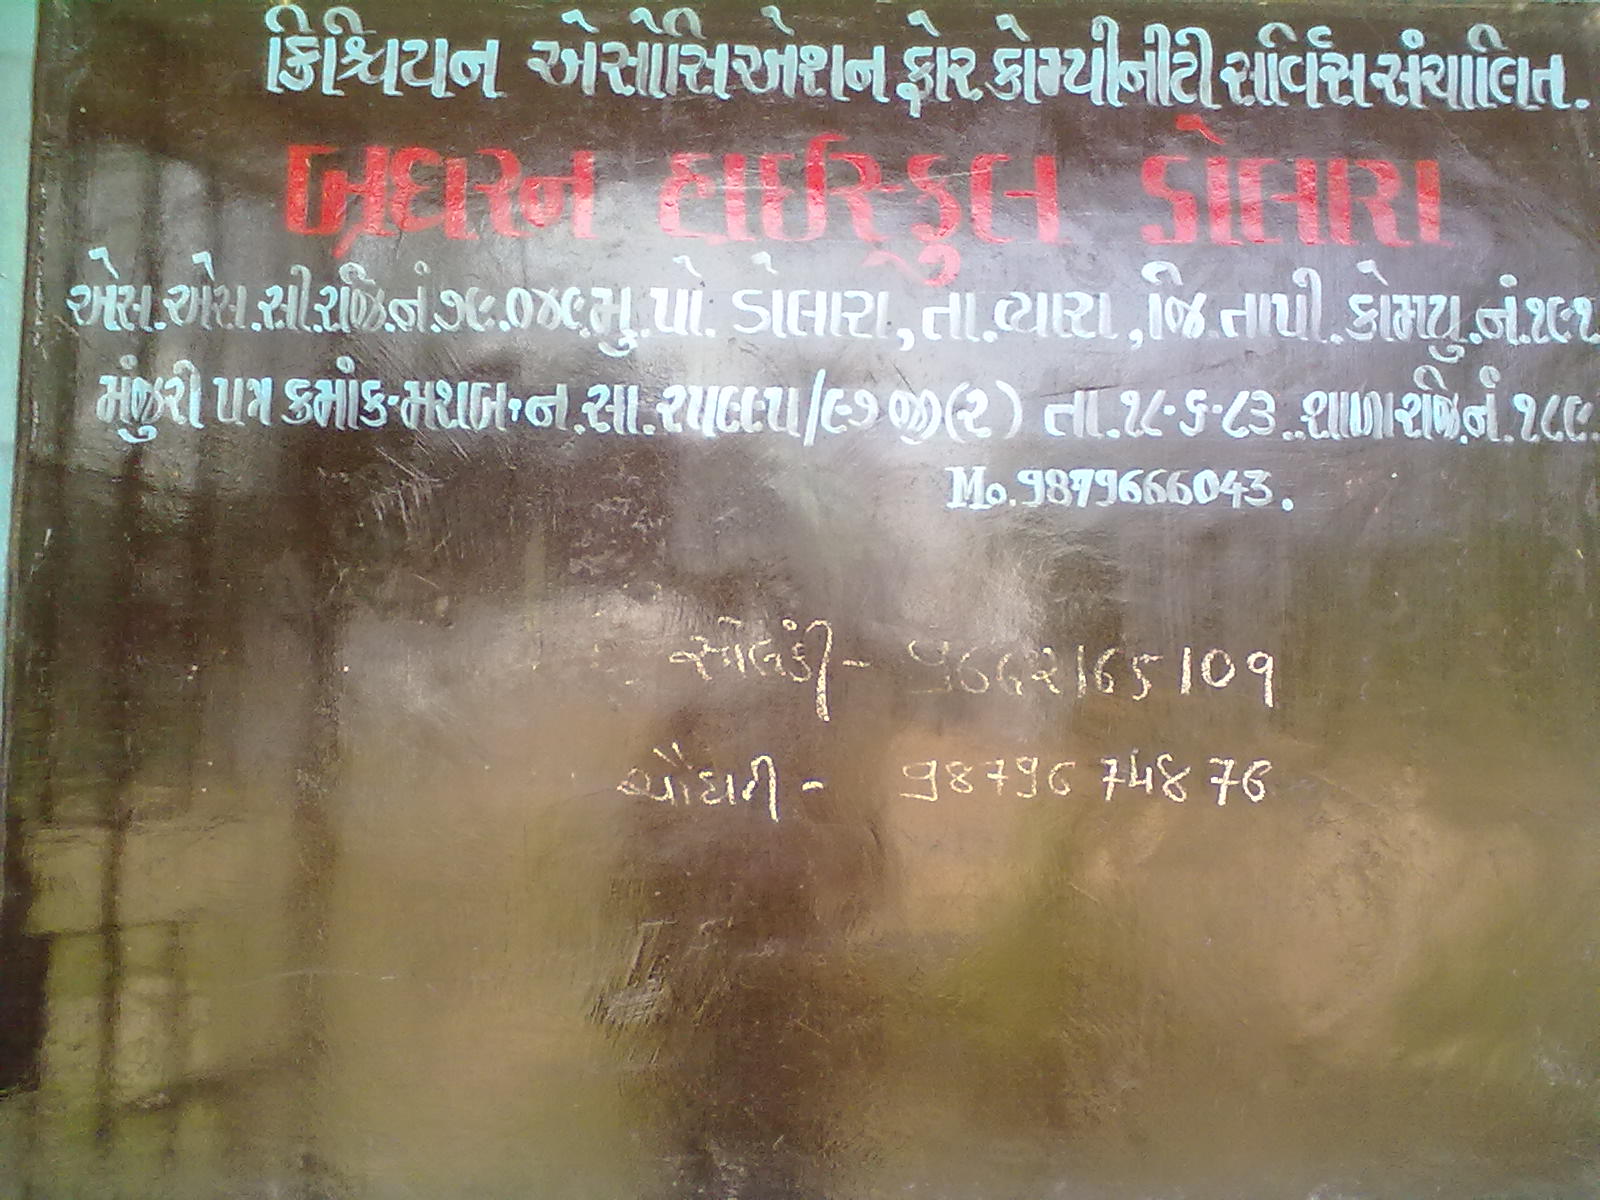 ક્રિશ્ચિયન એસોસિએશન ફોર કોમ્યીનીટી સર્વિસ સંચાલિત.
બ્રધરન હાઈસ્કુલ ડોલારા
એસ.એસ.સી.રજિ.નં.૭૯.૦૪૯.મુ.પો. ડોલારા, તા.વ્યારા, જિ.તાપી. કોમ્પ્યુ.નં.૨૯૨
મંજુરી પત્ર ક્રમાંક-મશબ.ન.સા. /૯૭ જી(૨) તા.૨૮-૬-૮૩..શાળા રજિ.નં.૧૮૯.
Mo.9879666043.
સોલંકી - 9662165109
ચૌધરી - 9879674876